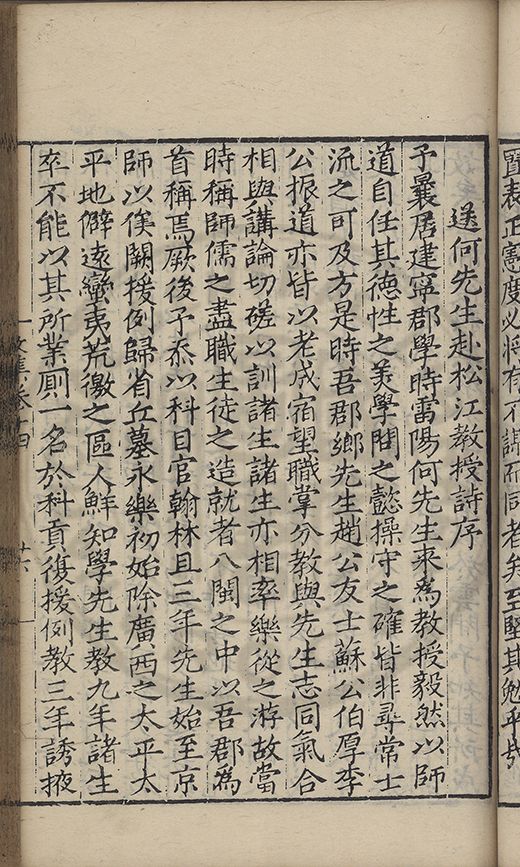 置表正憲度必將有不謀而同者矣至堅其勉乎哉
送何先生赴松江教授詩序
予曩居建寧郡學時雷陽何先生來為教授毅然以師
道自任其德性之美學問之懿操守之確皆非尋常士
流之可及方是時吾郡鄉先生趙公友士蘇公伯厚李
公振道亦皆以老成宿望職掌分教與先生志同氣合
相與講論切磋以訓諸生諸生亦相率樂從之游故當
時稱師儒之盡職生徒之造就者八閩之中以吾郡為
首稱焉厥後予忝以科目官翰林且三年先生始至京
師以俟闕援例歸省丘墓永樂初始除廣西之太平太
平地僻遠蠻夷荒徼之區人鮮知學先生教九年諸生
卒不能以其所業厠一名於科貢復援例教三年誘掖
文集卷十四
十六